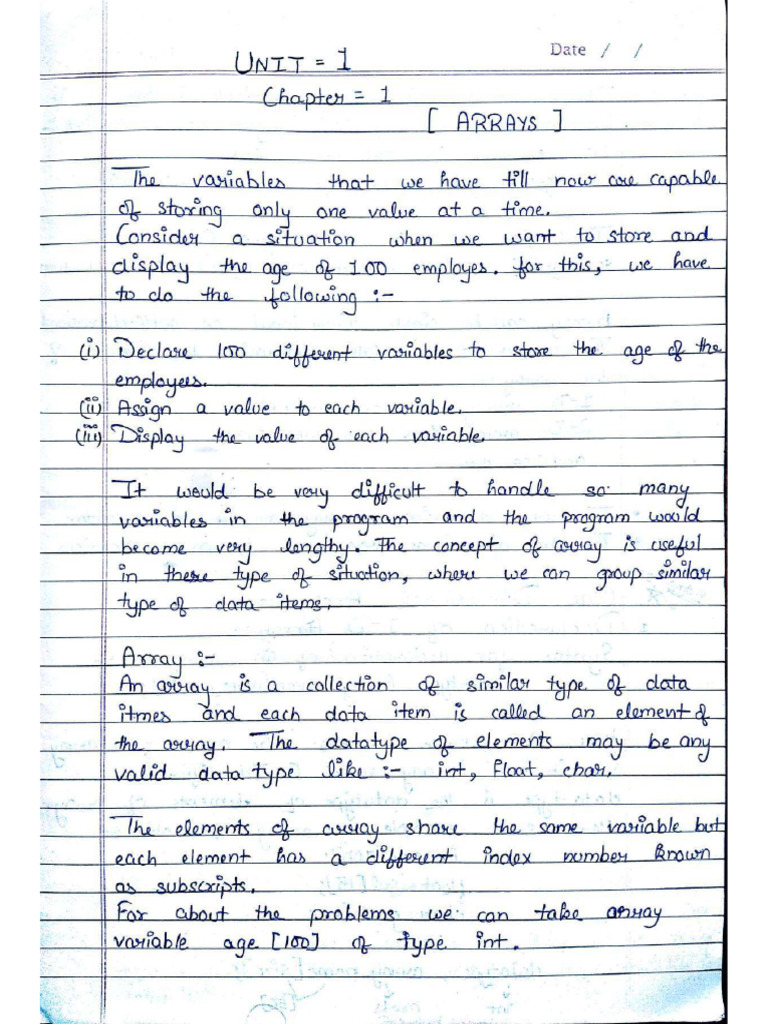 Date / /
UNIT = 1
Chapter = 1
[ ARRAYS ]
The variables that we have till now are capable
of storing only one value at a time.
Consider a situation when we want to store and
display the age of 100 employes. for this, we have
to do the following :-
(i) Declare 100 different variables to store the age of the
employees.
(ii) Assign a value to each variable.
(iii) Display the value of each variable.
It would be very difficult to handle so many
variables in the program and the program would
become very lengthy. The concept of array is useful
in these type of situation, where we can group similar
type of data items.
Array :-
An array is a collection of similar type of data
itmes and each data item is called an element of
the array. The datatype of elements may be any
valid data type like :- int, float, char.
The elements of array share the same variable but
each element has a different index number known
as subscripts.
For about the problems we can take array
variable age [100] of type int.